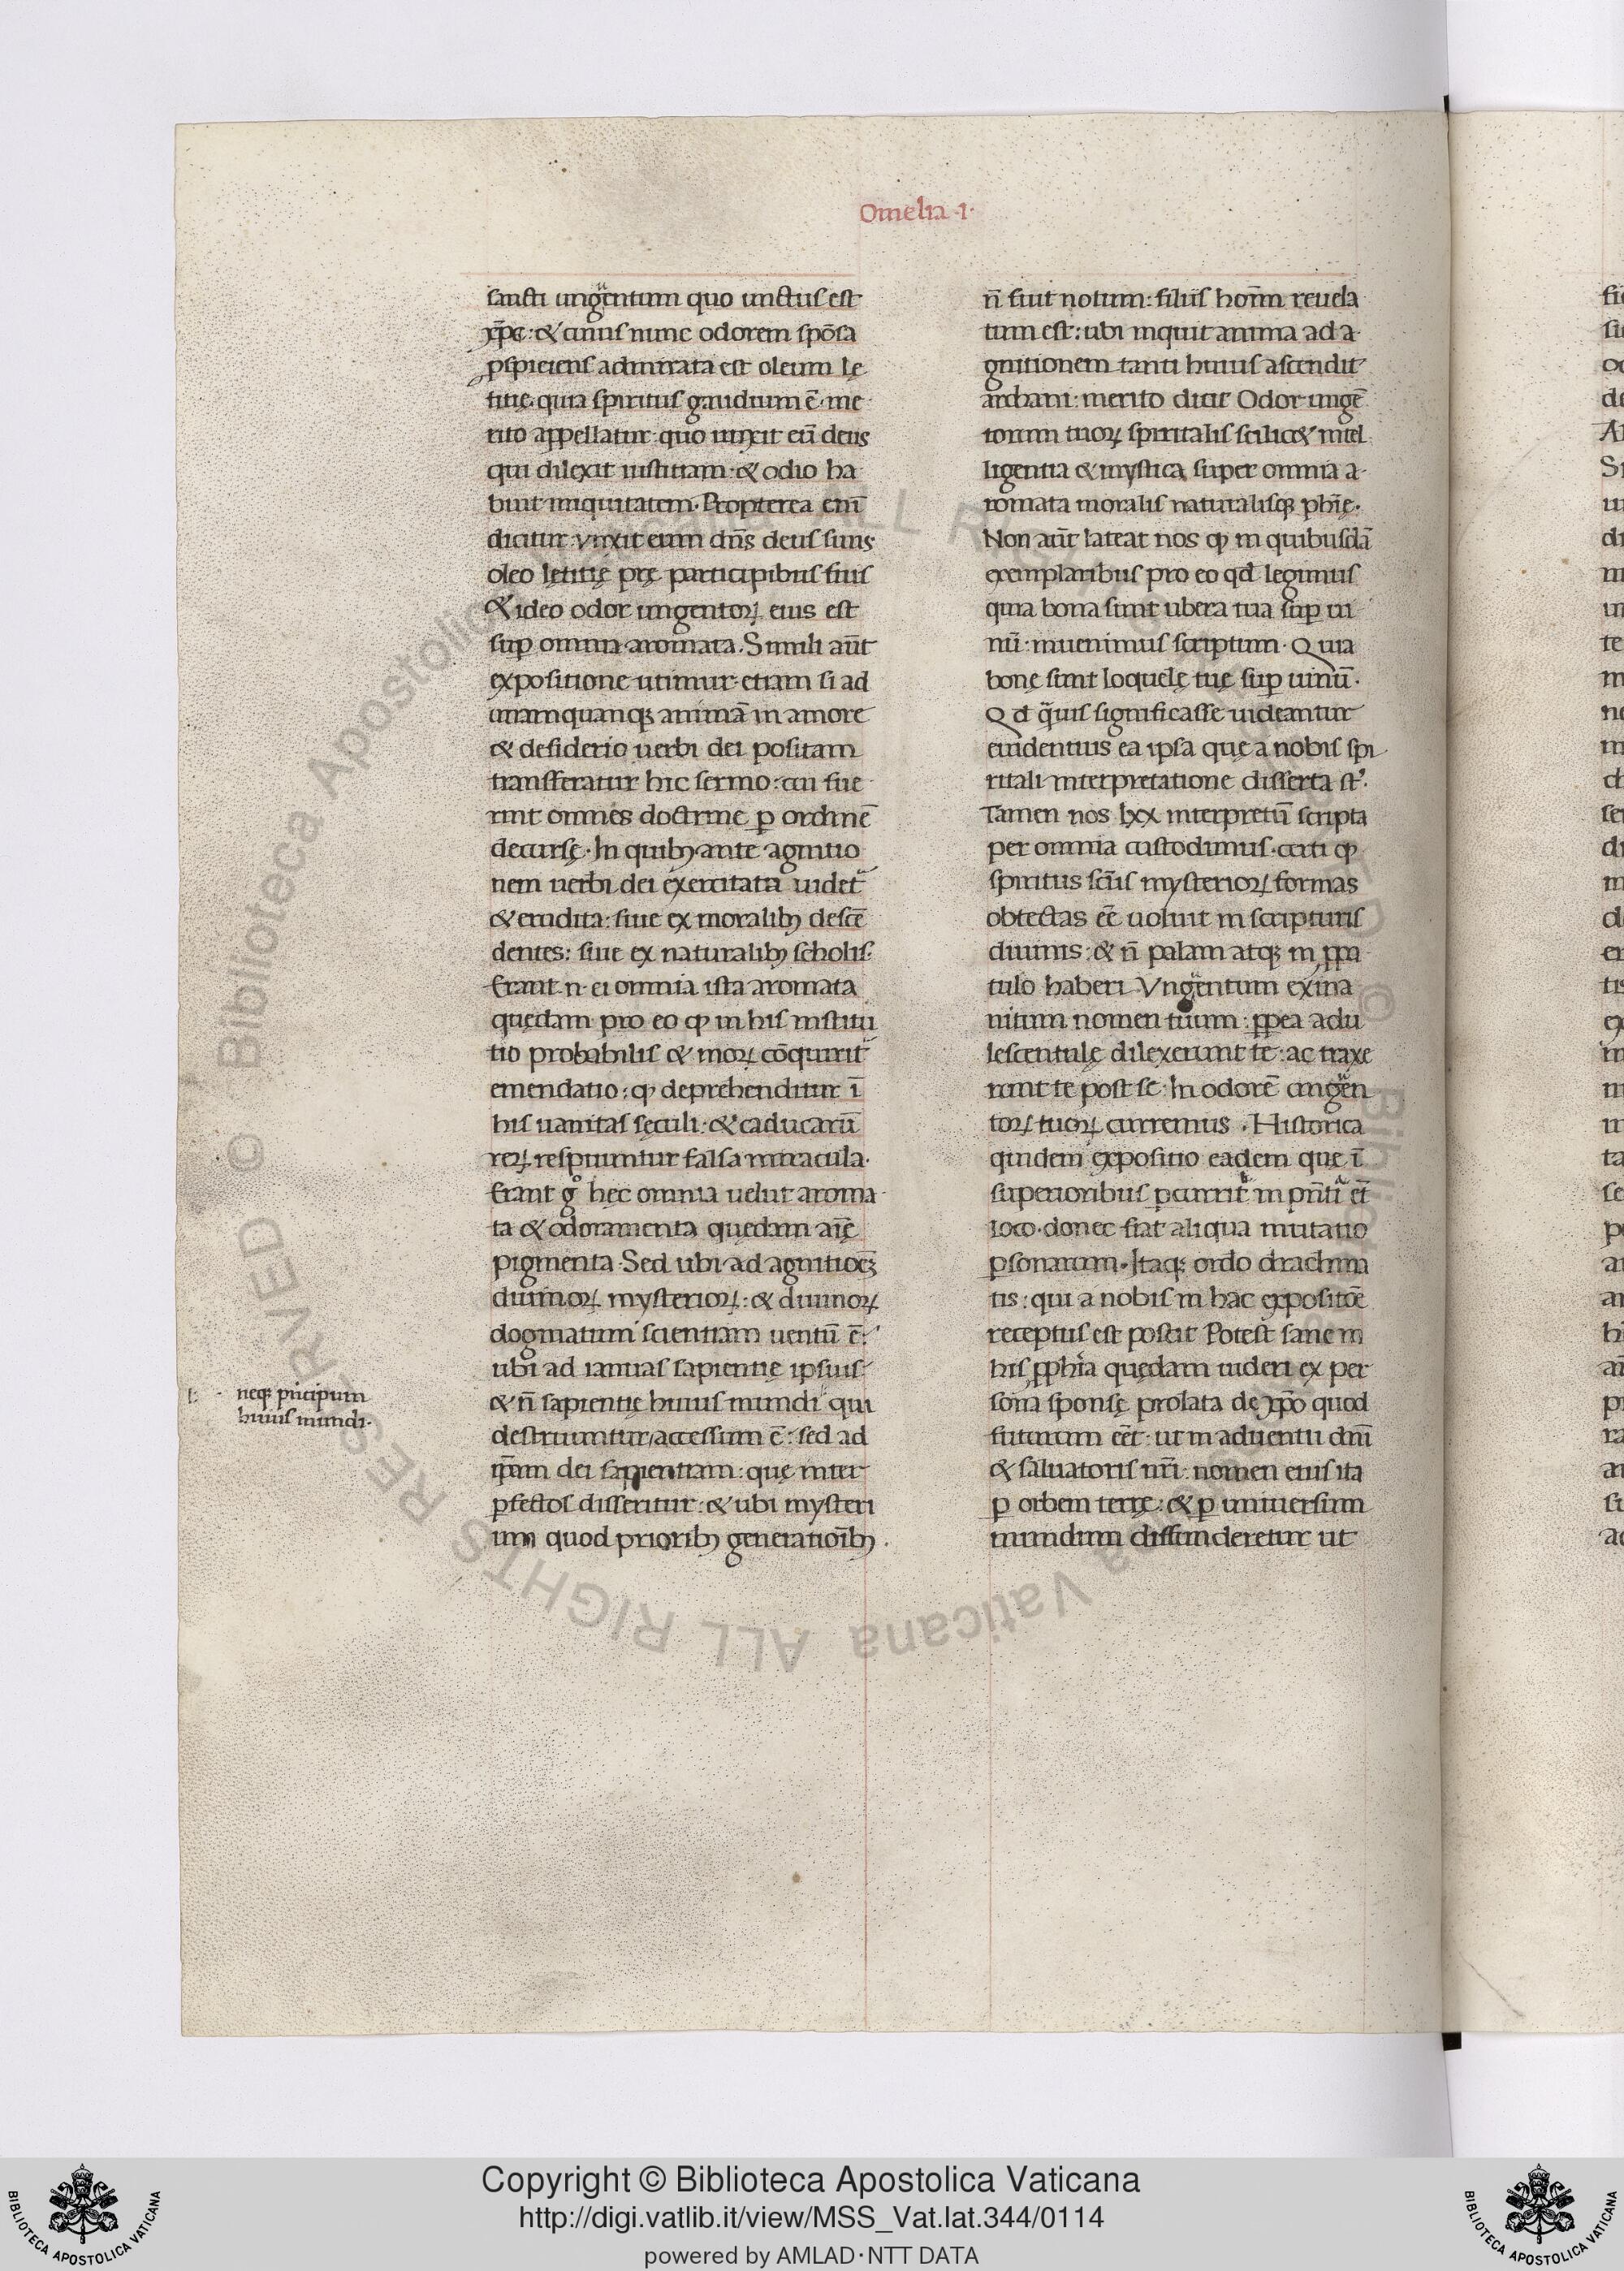 Omelia ·1·
sancti ungentum quo unctus est
xp̅c: & cuius nunc odorem spōsa
ꝑspiciens admirata est oleum lę
titię quia spiritus gaudium ē· me
rito appellatur· quo unxit eū deus
qui dilexit iustitiam· & odio ha
buit iniquitatem. Propterea eni̅
dicitur· vnxit eum dn̅s deus suus
oleo lętitię prę participibus suis
& ideo odor ungentoꝝ eius est
suꝑ omnia aromata. Simili aūt
expositione utimur· etiam si ad
unamquanqꝫ animā in amore
& desiderio uerbi dei positam
transferatur hic sermo: cui fue
rint omnes doctrine ꝑ ordinē
decursę· In quibꝫ ante agnitio
nem uerbi dei exercitata uidet᷑
& erudita: siue ex moralibꝫ descē
dentes: siue ex naturalibꝫ scholis·
Erant ·n· ei omnia ista aromata
quędam pro eo ꝙ in his institu
tio probabilis & moꝝ cōquirit᷑
emendatio: ꝙ deprehenditur ī
his uanitas sęculi: & caducarū
reꝝ respuuntur falsa miracula·
Erant gͦ hęc omnia uelut aroma
ta & odoramenta quędam aīę
pigmenta· Sed ubi ad agnitioēꝫ
diuinoꝝ mysterioꝝ: & diuinoꝝ
dogmatum scientiam uentū ē:
ubi ad ianuas sapientię ipsius
& n̄ sapientię huius mundi qui
neqꝫ pricipum
huius mundi·
destruuntur/accessum ē: sed ad
ip̅am dei sapientiam: quę inter
ꝑfectos disseritur: & ubi mysteri
um quod prioribꝫ generatioībꝫ·
n̄ fuit notum: filiis hoīm reuela
tum est: ubi inquit anima ad a
gnitionem tanti huius ascendit
archani: merito dicit Odor ungē
torum tuoꝝ spiritalis scilic& intel
ligentia & mystica super omnia a
romata moralis naturalisqꝫ phīę·
Non aūt lateat nos ꝙ in quibusdā
exemplaribus pro eo qd̅ legimus
quia bona sunt ubera tua suꝑ ui
nū· inuenimus scriptum· Quia
bonę sunt loquelę tuę suꝑ uinū·
Qd̅ q̃uis significasse uideantur
euidentius ea ipsa quę a nobis spi
ritali interpretatione disserta st̅·
Tamen nos lxx interpretū scripta
per omnia custodimus· certi ꝙ
spiritus sc̅us mysterioꝝ formas
obtectas eē uoluit in scripturis
diuinis: & n̄ palam atqꝫ in ꝓpa
tulo haberi Vngentum exina
nitum nomen tuum: ꝓpea adu
lescentulę dilexerunt te: ac traxe
runt te post se· In odorē ungen
toꝝ tuoꝝ curremus · Historica
quidem expositio eadem quę ī
superioribus ꝑcurrit᷑ in pn̄ti et̅
loco· donec fiat aliqua mutatio
ꝑsonarum· Itaqꝫ ordo drachma
tis: qui a nobis in hac expositōe
receptus est poscit Potest sane in
his ꝓphīa quędam uideri ex per
sona sponsę prolata de xp̅o quod
futurum eēt· ut in aduentu dn̅i
& saluatoris nr̅i· nomen eius ita
ꝑ orbem terrę: & ꝑ uniuersum
mundum diffunderetur ut
Copyright © Biblioteca Apostolica Vaticana
http://digi.vatlib.it/view/MSS_Vat.lat.344/0114
powered by AMLAD·NTT DATA